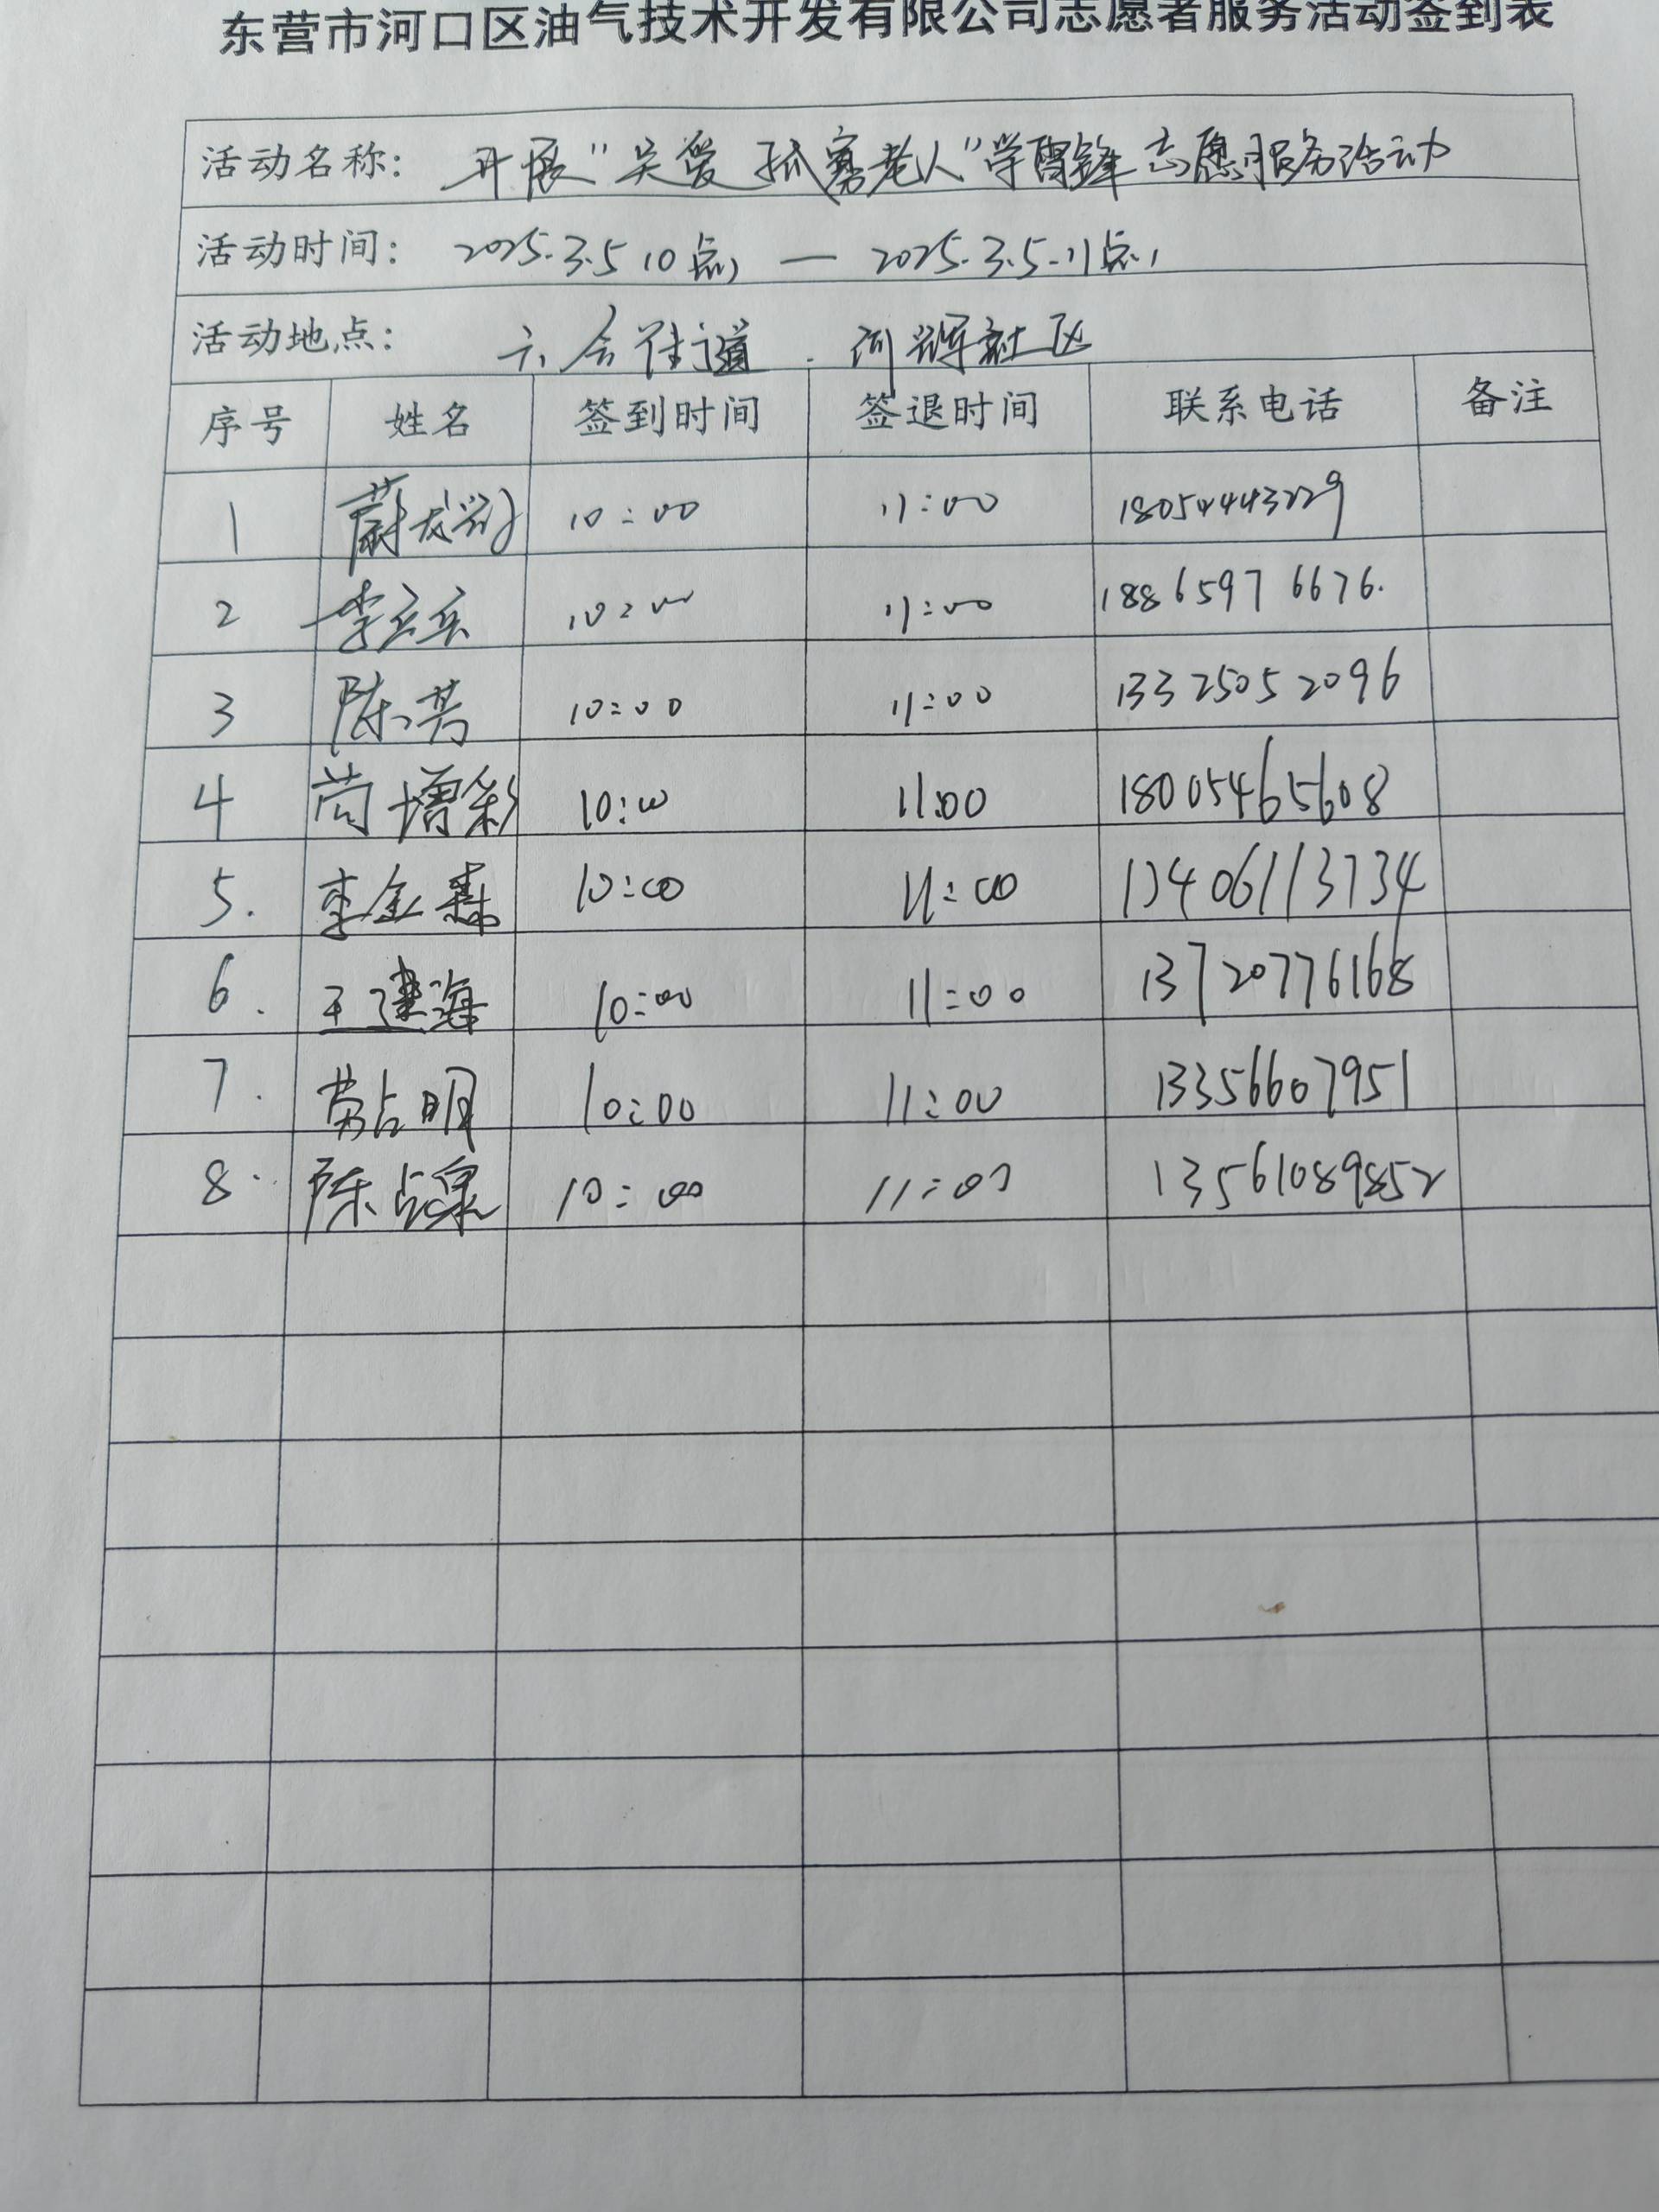 东营市河口区油气技术开发有限公司志愿者服务活动签到表
活动名称: 开展"关爱孤寡老人"学雷锋志愿服务活动
活动时间: 2025.3.5 10点 — 2025.3.5 11点
活动地点: 六合街道 河辉社区
序号 姓名 签到时间 签退时间 联系电话 备注
1 10:00 11:00 18054443229
2 李立兵 10:00 11:00 18865976676.
3 陈芳 10:00 11:00 13325052096
4 苘增彩 10:00 11:00 18005465608
5. 李金森 10:00 11:00 13406113734
6. 王建海 10:00 11:00 13720776168
7. 劳占明 10:00 11:00 13356607951
8. 陈占泉 10:00 11:00 13561089852